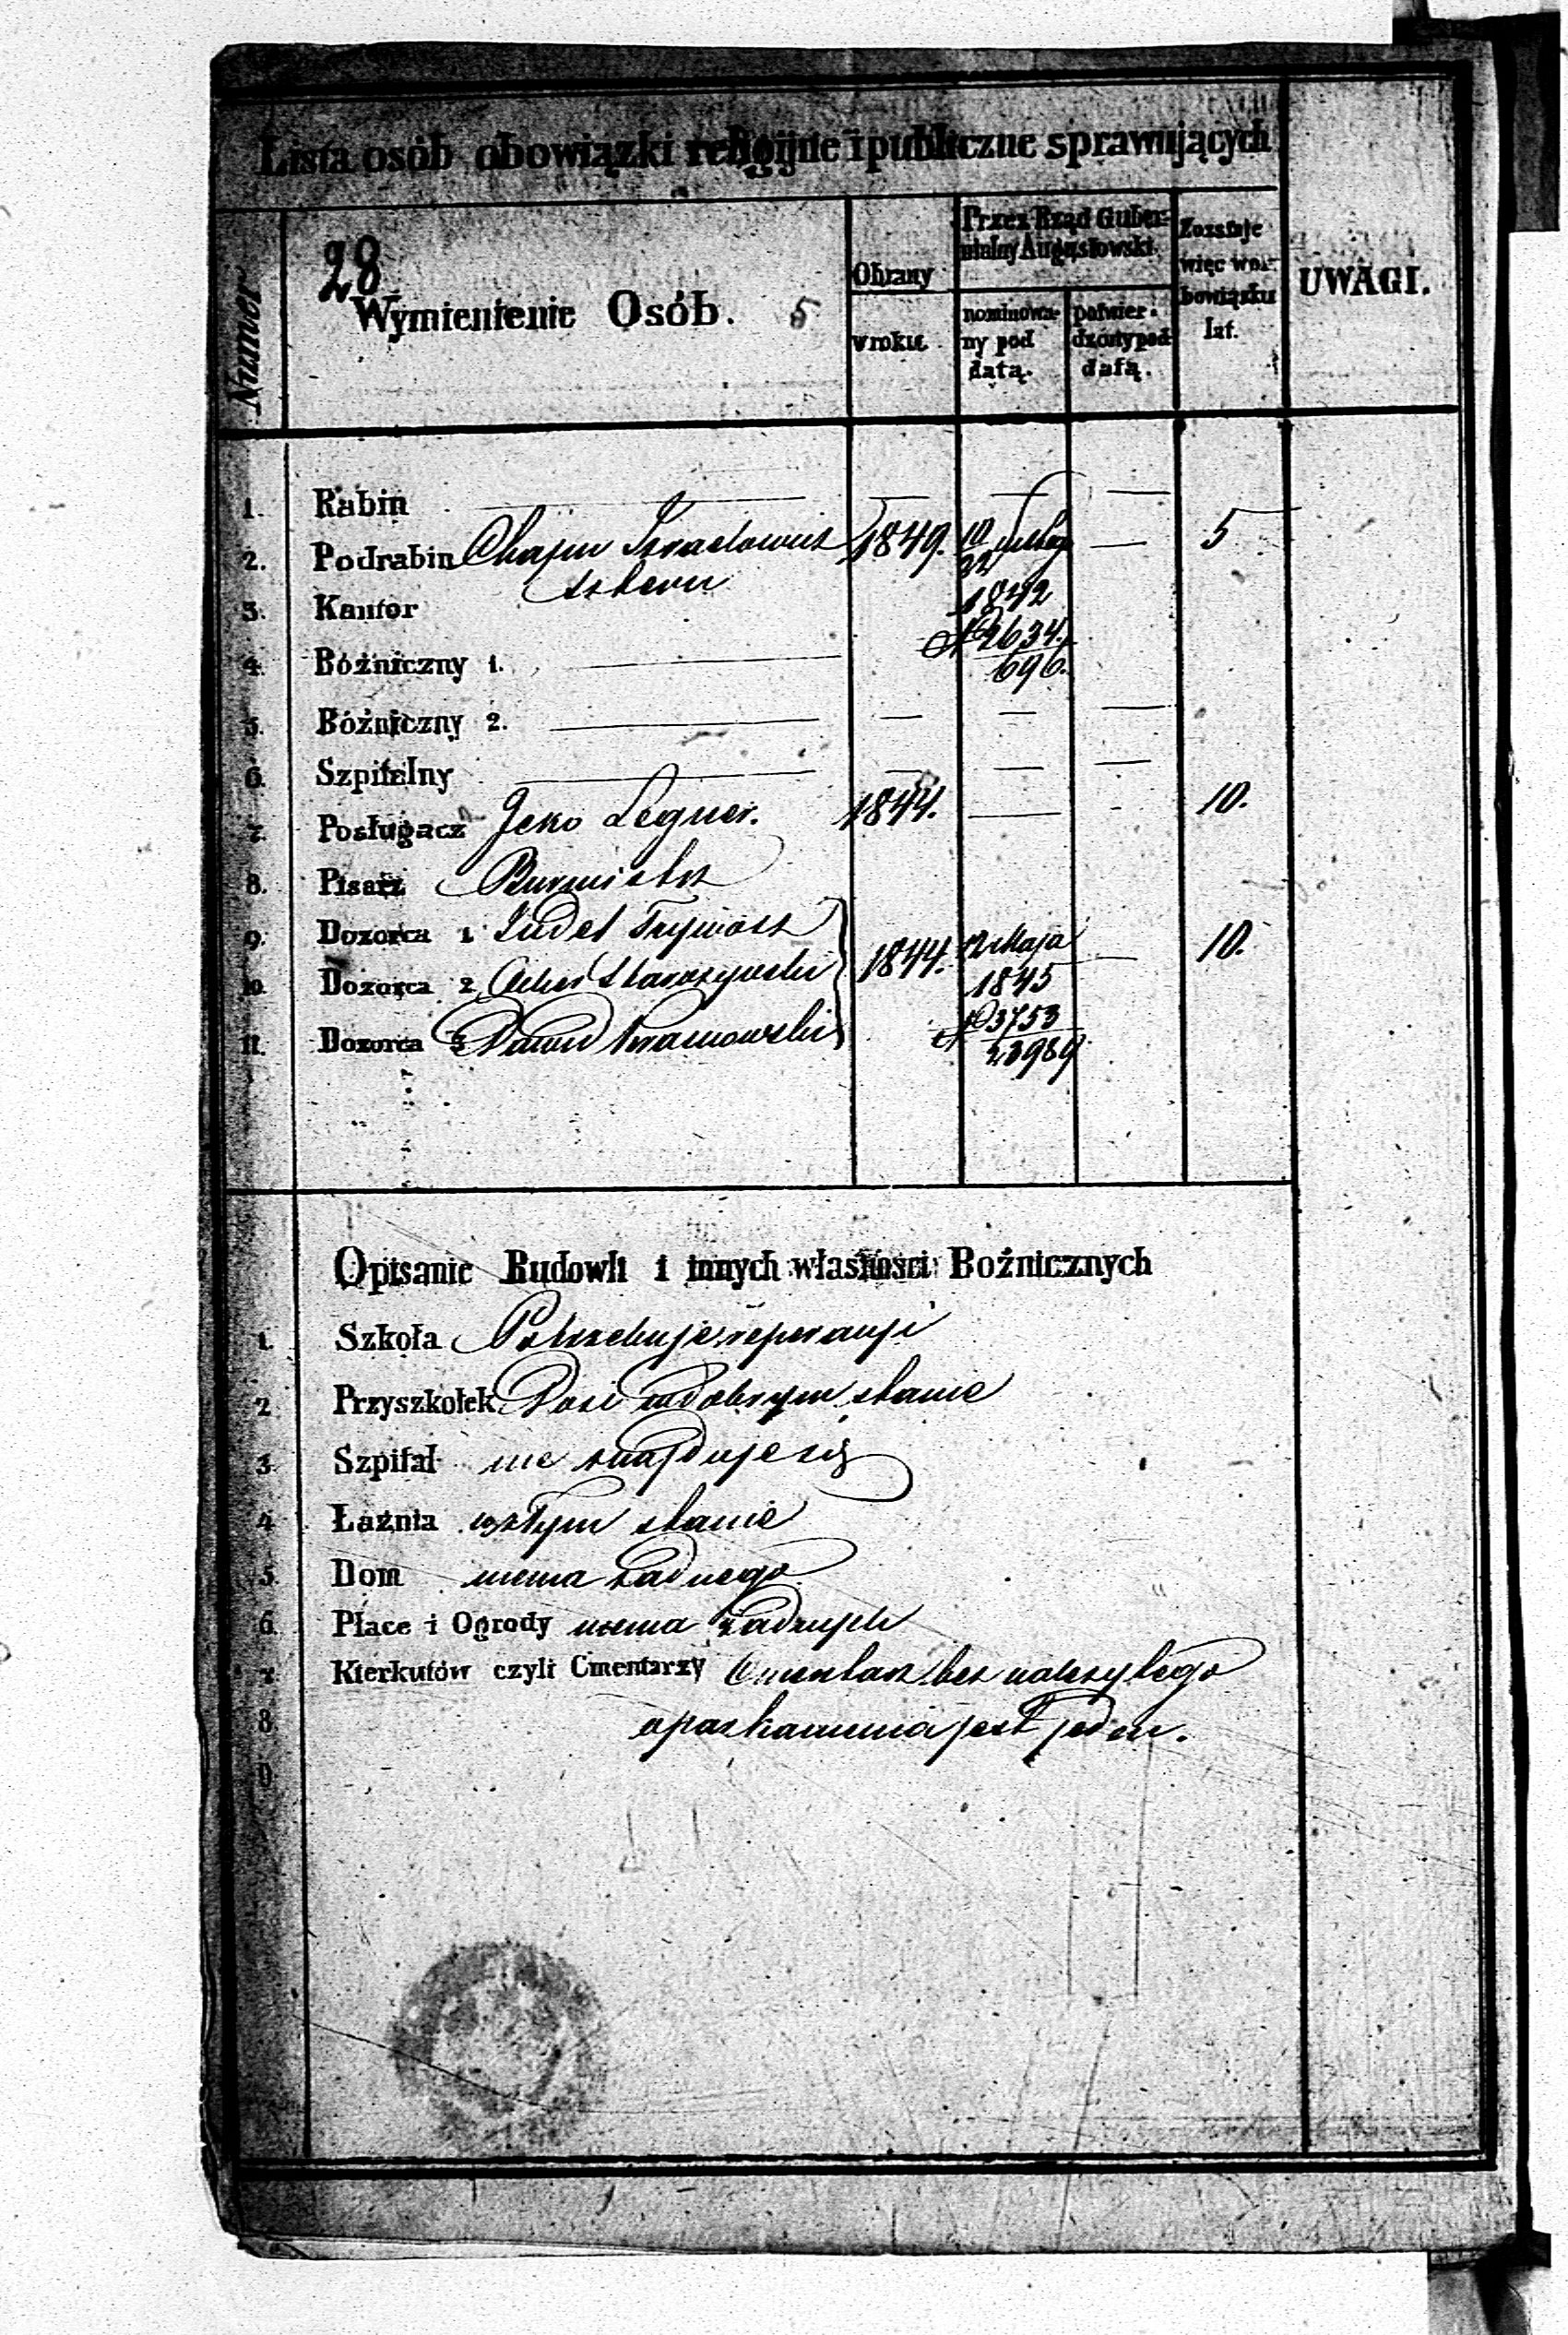 Lista osób obowiązki religijne i publiczne sprawujących
Numer
28
Wymienienie Osób. 5
Obrany w roku
Przez Rząd Gubernialny Augustowski
nominowany pod datą.
potwierdzony pod datą.
Zostaje więc w obowiązku lat.
UWAGI.
1. Rabin — — — —
2. Podrabin Chaim Izraelowicz 1849. 10/22 — 5
1842
3. Kantor
№ 2634/696.
4. Bóźniczny 1. —
5. Bóźniczny 2. — — — —
6. Szpitalny — — — —
7. Posługacz Icko Legner. 1844. — - 10.
8. Pisarz Burmistrz
9. Dozorca 1. Judel 1844. 12 Maja — 10.
10. Dozorca 2 1845
11. Dozorca 3 Dawid № 3753/23989
Opisanie Budowli i innych własności Boźnicznych
1. Szkoła Potrzebuje reperacyi
2 Przyszkołek Dosć w dobrym stanie
3. Szpital nie znajduje się
4 Łaźnia w złym stanie
5. Dom niema żadnego
6. Place i Ogrody niema żadnych
7. Kierkutów czyli Cmentarzy Cmentarz bez należytego
8 oparkanienia jest jeden.
9